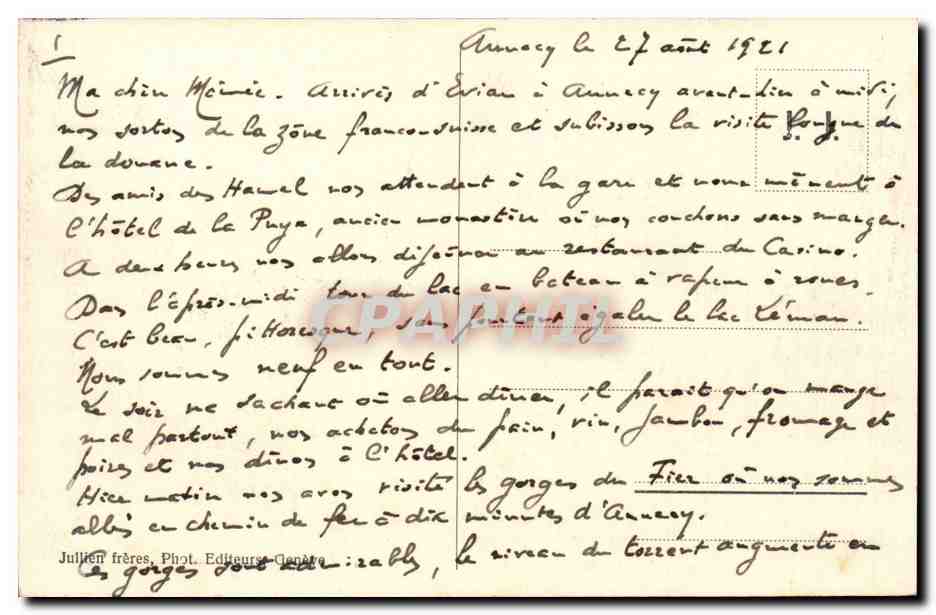 1
Annecy le 27 août 1921
Ma chère Mémée. Arrivés d'Evian à Annecy avant-hier à midi,
nos sortos de la zône franco-suisse et subissons la visite longue de
la douane.
Des amis des Hamel nos attendent à la gare et nous mènent à
l'hôtel de la Puya, ancien monastère où nos couchons sans manger.
A deux heures nos allons déjeûner au restaurant du Casino.
Das l'après-midi tour du lac en bateau à vapeur à roues.
C'est beau, pittoresque, sans pourtant égaler le lac Léman.
Nous sommes neuf en tout.
Le soir ne sachant où aller dîner, il parait qu'on mange
mal partout, nos achetos du pain, vin, jambon, fromage et
poires et nos dînos à l'hôtel.
Hier matin nos avos visité les gorges du Fier où nos sommes
allés en chemin de fer à dix minutes d'Annecy.
Ces gorges sont admirables, le niveau du torrent augmente en
Jullien frères, Phot. Editeurs, Genève
CPAPHIL